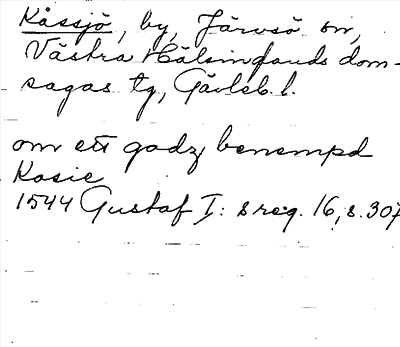 Kåssjö, by, Järvsö sn,
Västra Hälsinglands dom-
sagas tg, Gävleb. l.
om ett godz benempd
Kosie
1544 Gustaf I: s reg. 16, s. 307